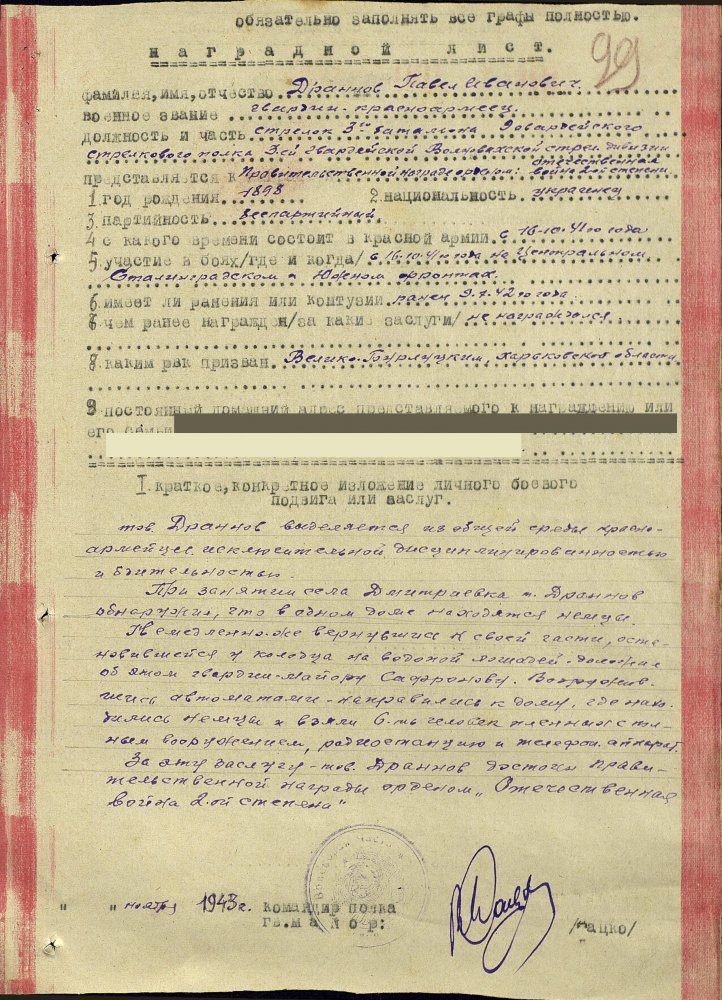 обязательно заполнять все графы полностью.
НАГРАДНОЙ ЛИСТ.
99
фамилия, имя, отчество Драннов Павел Иванович.
военное звание гвардии-красноармеец.
должность и часть стрелок 3го батальона 9 гвардейского
стрелкового полка 3-ей гвардейской Волновахской стрел. дивизии
представляется к Правительственной награде орденом: отечественная война 2-ой степени
1. год рождения 1898 2. национальность украенец
3. партийность беспартийный
4 с какого времени состоит в красной армии с 16-10-41го года
5. участие в боях/где и когда/ с 16.10.41го года на Центральном,
Сталинградском и Южном фронтах.
6. имеет ли ранения или контузии ранен 9.7.42го года.
чем ранее награжден/за какие заслуги/ не награждался
каким рвк призван Велико-Бурлуцким, Харьковской области
9 постоянный домашний адрес представляемого к награждению или
его семьи
I. краткое, конкретное изложение личного боевого
подвига или заслуг.
тов. Драннов выделяется из общей среды красно-
армейцев исключительной дисциплинированностью
и бдительностью.
При занятии села Дмитраевка т. Драннов
обнаружил, что в одном доме находятся немцы.
Немедленно-же вернувшись к своей части, оста-
новившейся у колодца на водопой лошадей- доложил
об этом гвардии-майору Сафронову. Вооружив-
шись автоматами- направились к дому, где нахо-
дились немцы и взяли 6-ть человек пленных с пол-
ным вооружением, радиостанцию и телефон. аппарат.
За эту заслугу- тов. Драннов достоин прави-
тельственной награды орденом „Отечественная
война 2-ой степени"
" " ноября 1943 г. командир полка
гв. майор: /Мацко/